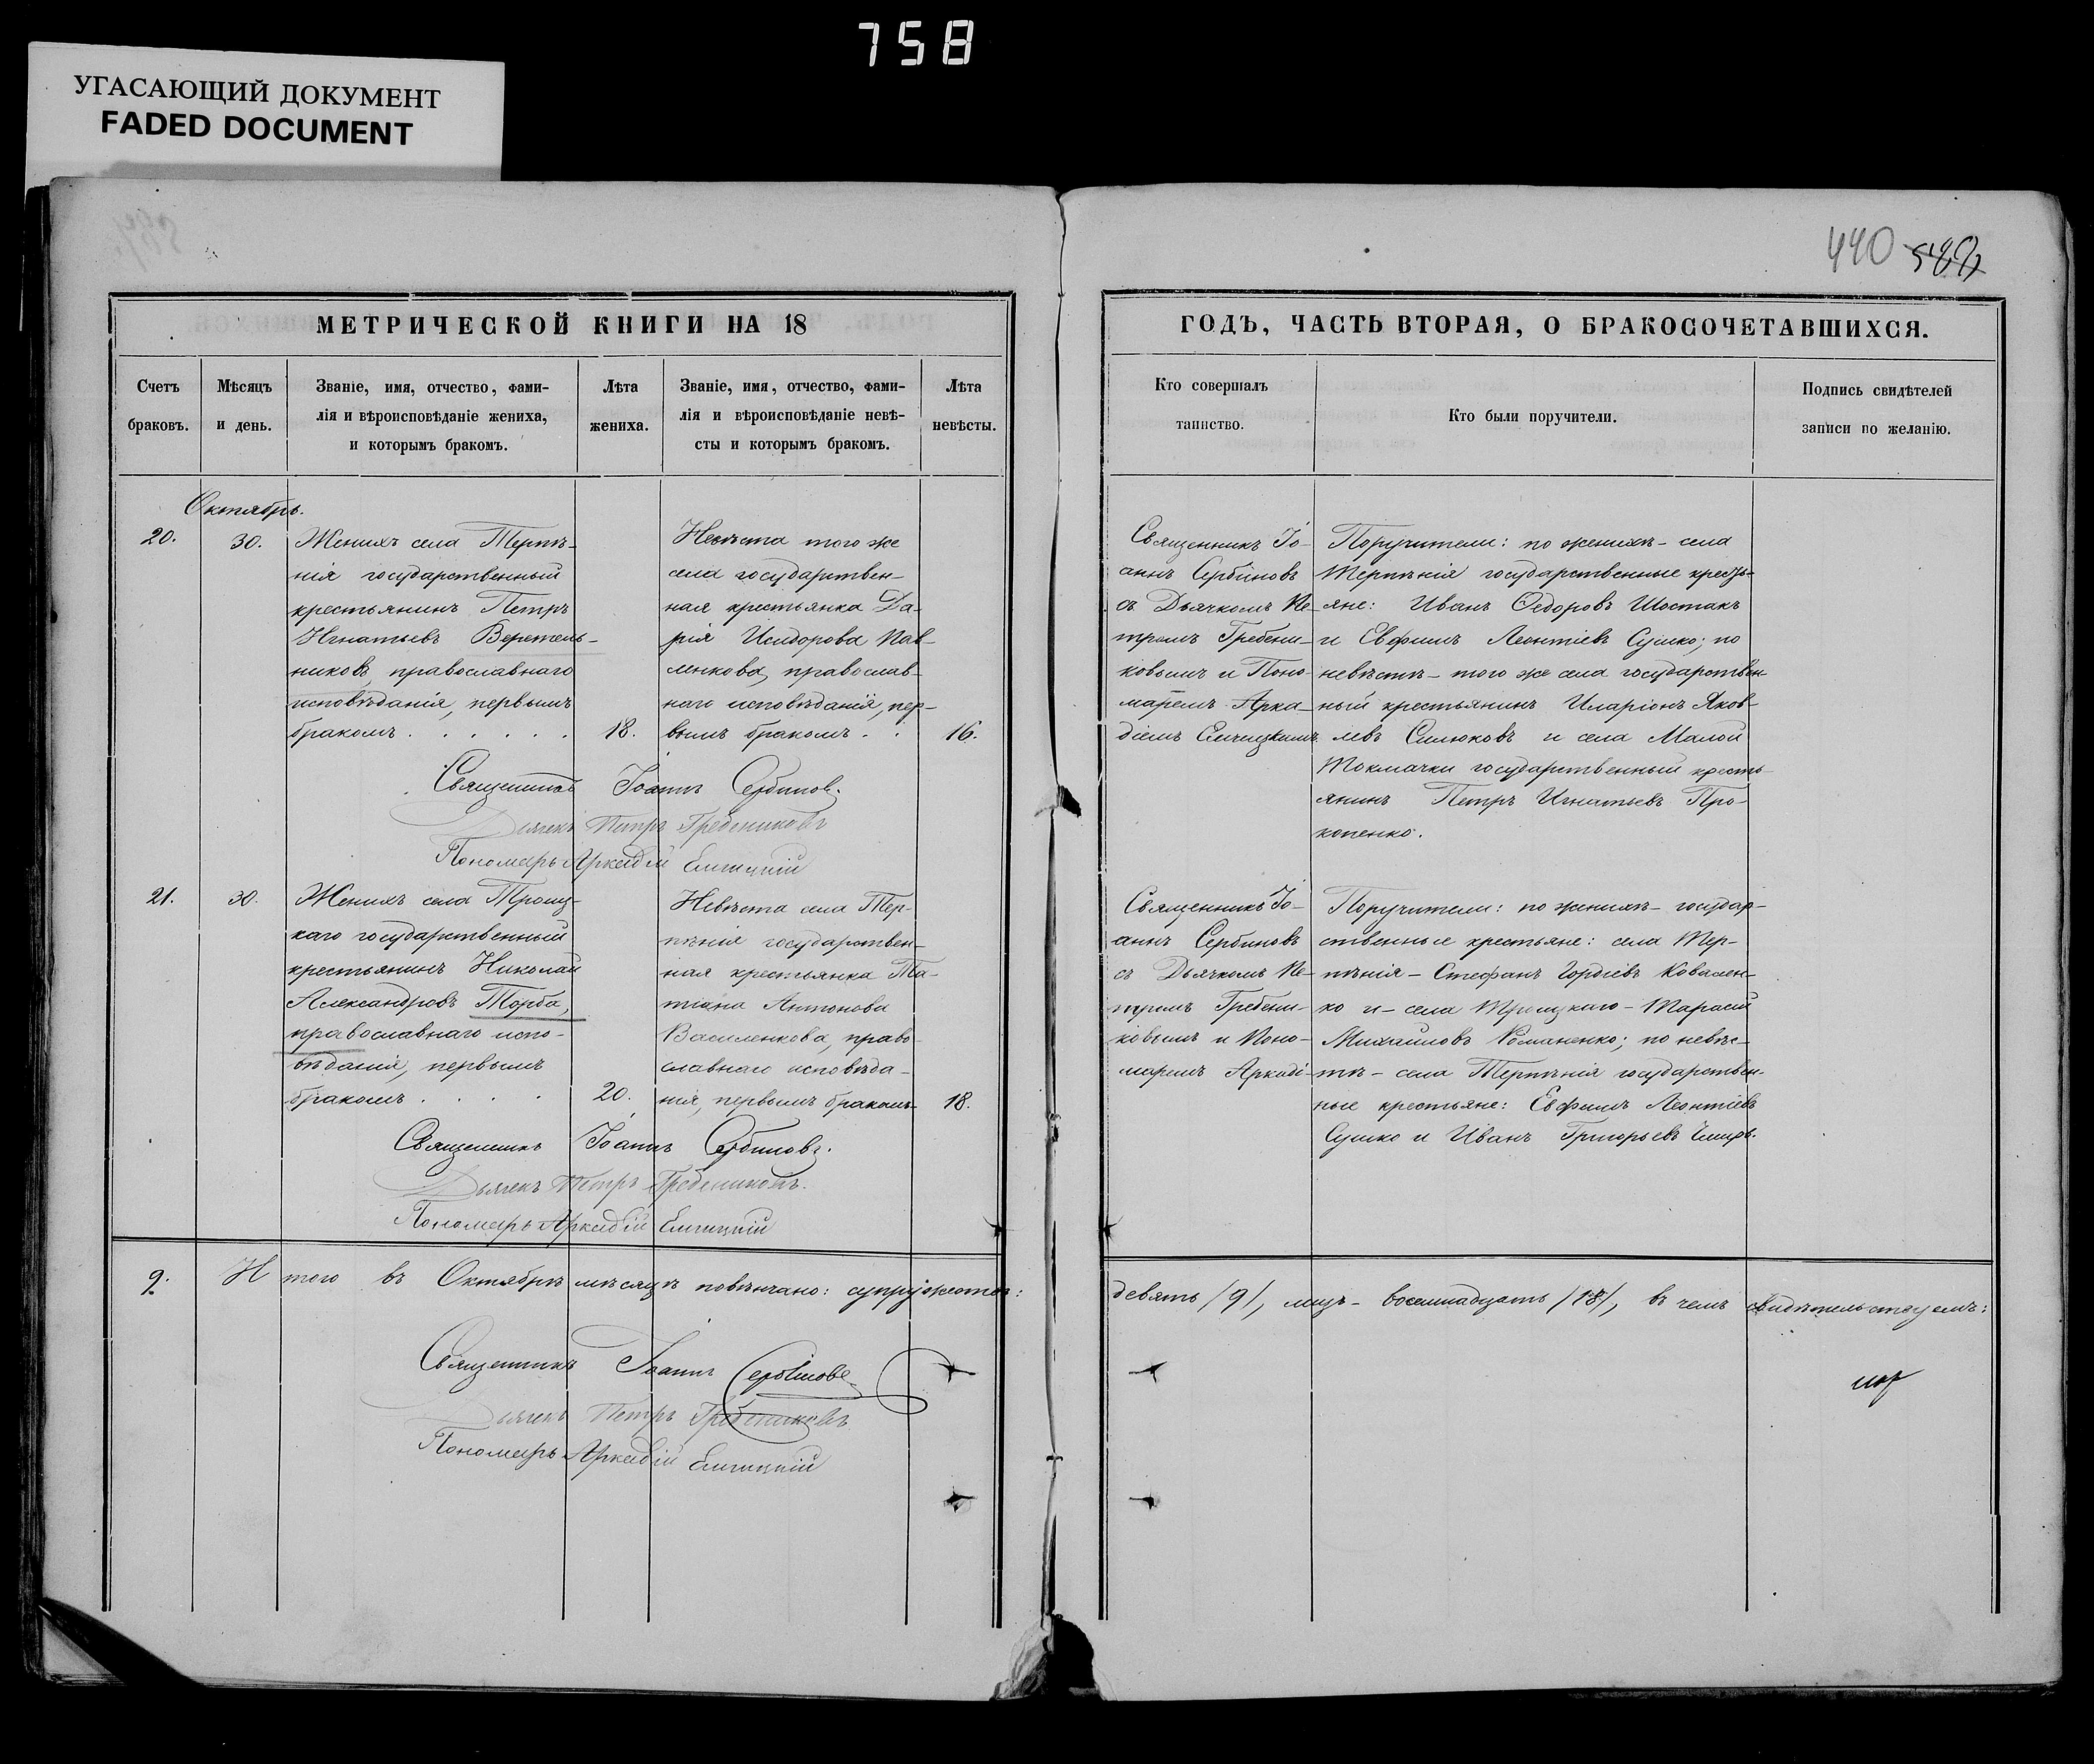 758
УГАСАЮЩИЙ ДОКУМЕНТ
FADED DOCUMENT
440 588
МЕТРИЧЕСКОЙ КНИГИ НА 18
Счетъ браковъ.
Мѣсяцъ и день.
Званіе, имя, отчество, фами-
лія и вѣроисповѣданіе жениха,
и которымъ бракомъ.
Лѣта жениха.
Званіе, имя, отчество, фами-
лія и вѣроисповѣданіе невѣ-
сты и которымъ бракомъ.
Лѣта невѣсты.
Октябрь.
20.
30.
Женихъ села Терпѣ-
нія государственный
крестьянинъ Петръ
Игнатьевъ Веретель-
никовъ, православнаго
исповѣданія, первымъ
бракомъ . . . . . .
18.
Невѣста того же
села государствен-
ная крестьянка Да-
рія Исидорова Пав-
ленкова, православ-
наго исповѣданія, пер-
вымъ бракомъ . .
16.
Священникъ Іоаннъ Сербиновъ.
Дьячекъ Петръ Гребениковъ
Пономарь Аркадій Елчицкій
21.
30.
Женихъ села Троиц-
каго государственный
крестьянинъ Николай
Александровъ Торба,
православнаго испо-
вѣданія, первымъ
бракомъ . . . .
20.
Невѣста села Тер-
пѣнія государствен-
ная крестьянка Та-
тіана Антонова
Василенкова, право-
славнаго исповѣда-
нія, первымъ бракомъ
18.
Священникъ Іоаннъ Сербиновъ.
Дьячекъ Петръ Гребениковъ.
Пономарь Аркадій Елчицкій
9. Итого въ Октябрѣ мѣсяцѣ повѣнчано: супружествъ:
Священникъ Іоаннъ Сербиновъ
Дьячекъ Петръ Гребениковъ
Пономарь Аркадій Елчицкій
ГОДЪ, ЧАСТЬ ВТОРАЯ, О БРАКОСОЧЕТАВШИХСЯ.
Кто совершалъ
таинство.
Кто были поручители.
Подпись свидѣтелей
записи по желанію.
Священникъ Іо-
аннъ Сербиновъ
съ Дьячкомъ Пе-
тромъ Гребени-
ковымъ и Поно-
маремъ Арка-
діемъ Елчицкимъ.
Поручители: по женихѣ - села
Терпѣнія государственные кресть-
яне: Иванъ Ѳедоровъ Шостакъ
и Евфимъ Леонтіевъ Сушко; по
невѣстѣ - того же села государствен-
ный крестьянинъ Иларіонъ Яков-
левъ Силюковъ и села Малой
Токмачки государственный кресть-
янинъ Петръ Игнатьевъ Про-
копенко.
Священникъ Іо-
аннъ Сербиновъ
съ Дьячкомъ Пе-
тромъ Гребени-
ковымъ и Поно-
маремъ Аркаді-
Поручители: по женихѣ - государ-
ственные крестьяне: села Тер-
пѣнія - Стефанъ Гордіевъ Ковален-
ко и - села Троицкаго - Тарасій
Михаиловъ Романенко; по невѣс-
тѣ - села Терпѣнія государствен-
ные крестьяне: Евфимъ Леонтіевъ
Сушко и Иванъ Григорьевъ
девять /9/, лицъ - восемнадцать /18/, въ чемъ свидѣтельствуемъ: